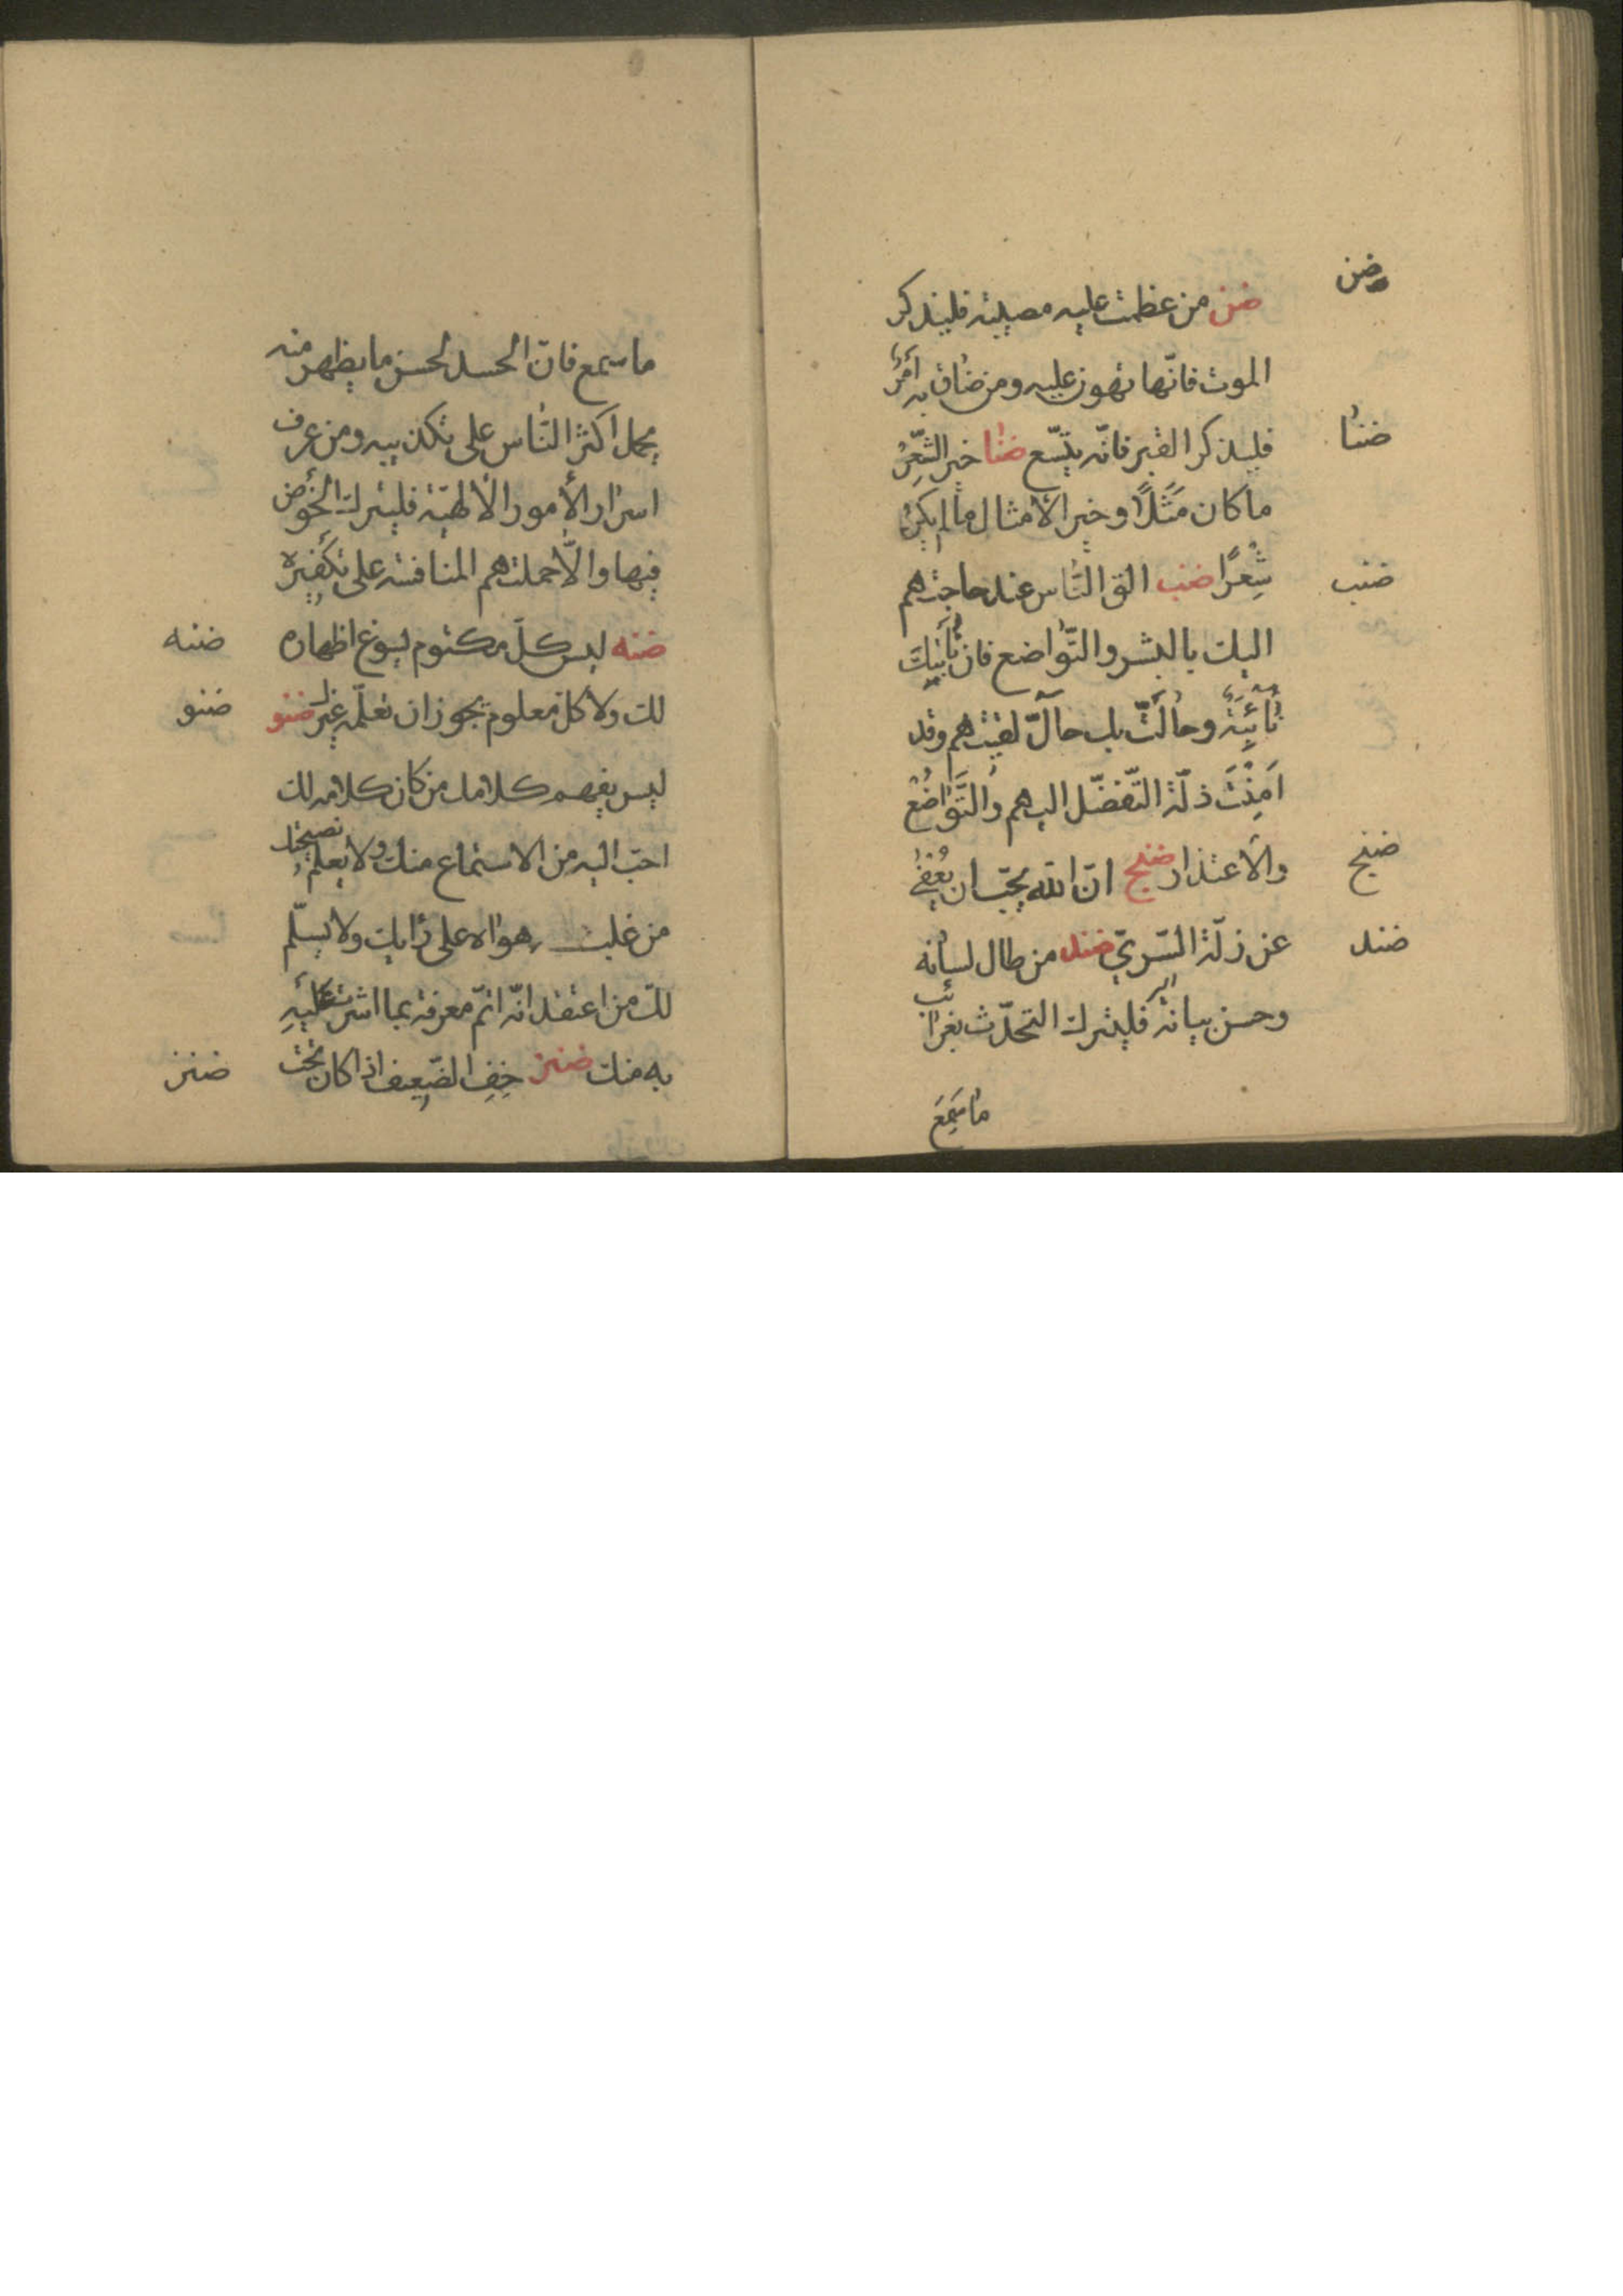 ضن
ضن من عظمت عليه مصيبته فليذكر
الموت فانّها تهون عليه ومن ضاق به أمر
ضنا
فليذكر القبر فانّه يتّسع ضنا خير الشّعر
ما كان مثلًا وخير الأمثال مالم يكن
ضنب
شعرًا ضنب الق النّاس عند حاجتهم
اليك بالبشر والتّواضع فان نابتك
نائبة وحالت بك حال لقيتهم وقد
امنت ذلّة التّفضّل اليهم والتّواضع
ضنج
والأعتذار ضنج انّ الله يحبّ ان يعفى
ضند
عن زلّة السّريّ ضند من طال لسانه
وحسن بيانه فليترك التحدّث بغرائب
ما سمع
ما سمع فانّ الحسد لحسن ما يظهر منه
يحمل اكثر النّاس على تكذيبه ومن عرف
اسرار الأمور الألهيّة فليترك الخوض
فيها والّا حملتهم المنافسة على تكفيره
ضنه ليس كلّ مكتوم يسوغ اظهاره
ضنه
لك ولا كلّ معلوم يجوز ان تعلّمه غيرك ضنو
ضنو
ليس يفهم كلامك من كان كلامه لك
احبّ اليه من الاستماع منك ولا يعلم نصيحتك
من غلب هواه على رايك ولا يسلّم
لك من اعتقد انّه اتمّ معرفة بما اشرت عليه
به منك ضنز خف الضّعيف اذا كان تحت
ضنز